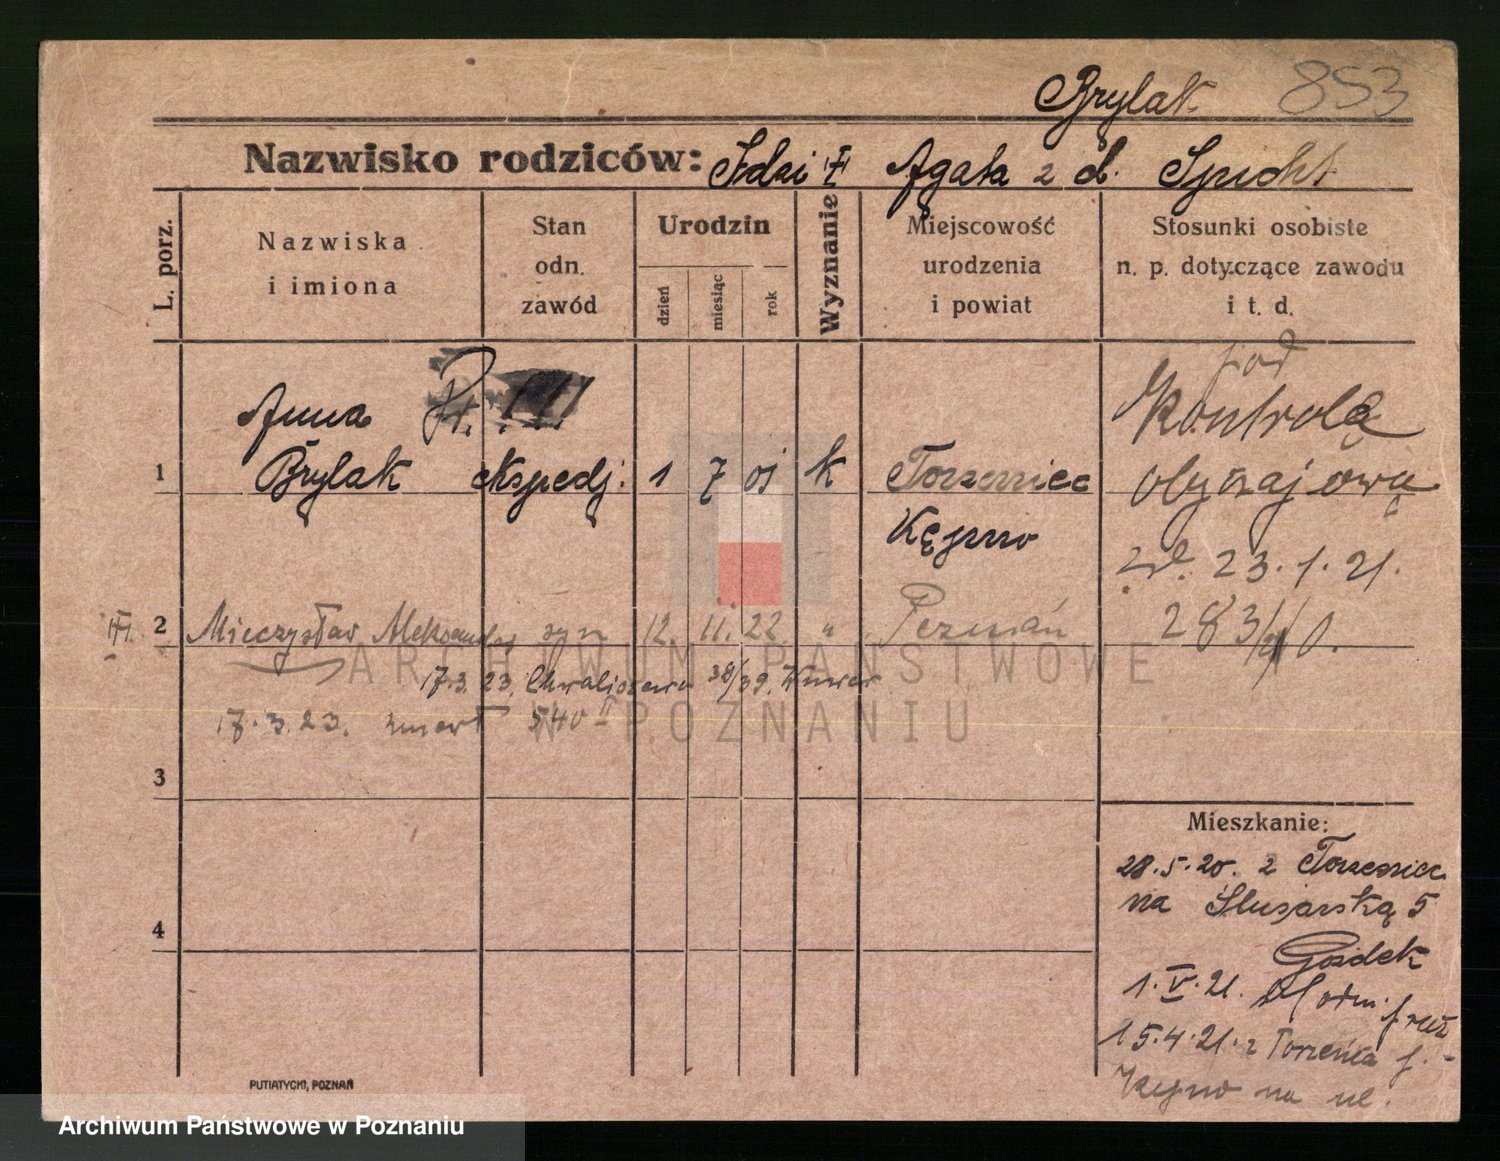 Brylak 853
Nazwisko rodziców: Idzi † Agata z d. Specht
L. porz.
Nazwiska
i imiona
Stan
odn.
zawód
Urodzin
dzień
miesiąc
rok
Wyznanie
Miejscowość
urodzenia
i powiat
Stosunki osobiste
n. p. dotyczące zawodu
i t. d.
1
Anna
Brylak ekspedj. 1 7 01 k Torzeniec
Kępno
pod
Kontrolą
obyczajową
zd. 23.1.21.
2 Mieczysław Aleksander syn 12. 11. 22. " Poznań
17.3.23. Chwaliszewo 38/39.
17.3.23. zmarł 540 II
3
4
Mieszkanie:
28.5.20. z Torzeniec
na Ślusarską 5
Gozdek
1.V.21.
15.4.21. z Torzeńca p.
Kępno na ul.
PUTIATYCKI, POZNAŃ
ARCHIWUM PAŃSTWOWE
W POZNANIU
Archiwum Państwowe w Poznaniu